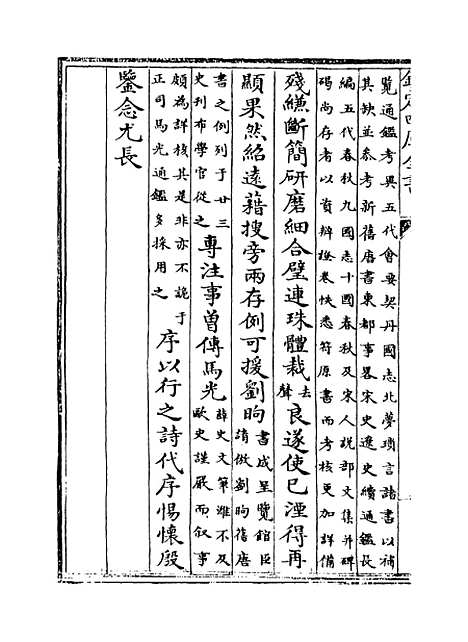 欽定四庫全書
覽通鑑考異五代會要契丹國志北夢瑣言諸書以補
其缺並參考新舊唐書東都事畧宋史遼史續通鑑長
編五代春秋九國志十國春秋及宋人說部文集并碑
碣尚存者以資辯證卷帙悉符原書而考核更加詳備
殘縑斷簡研磨細合璧連珠體裁去聲良遂使已湮得再
顯果然紹遠藉搜旁兩存例可援劉昫書成呈覽館臣請倣劉昫舊唐
書之例列于廿三史刊布學官從之專注事曾傳馬光薛史文筆雖不及歐史謹嚴而叙事
頗為詳核其是非亦不詭于正司馬光通鑑多採用之序以行之詩代序惕懷殷
鑒念尤長